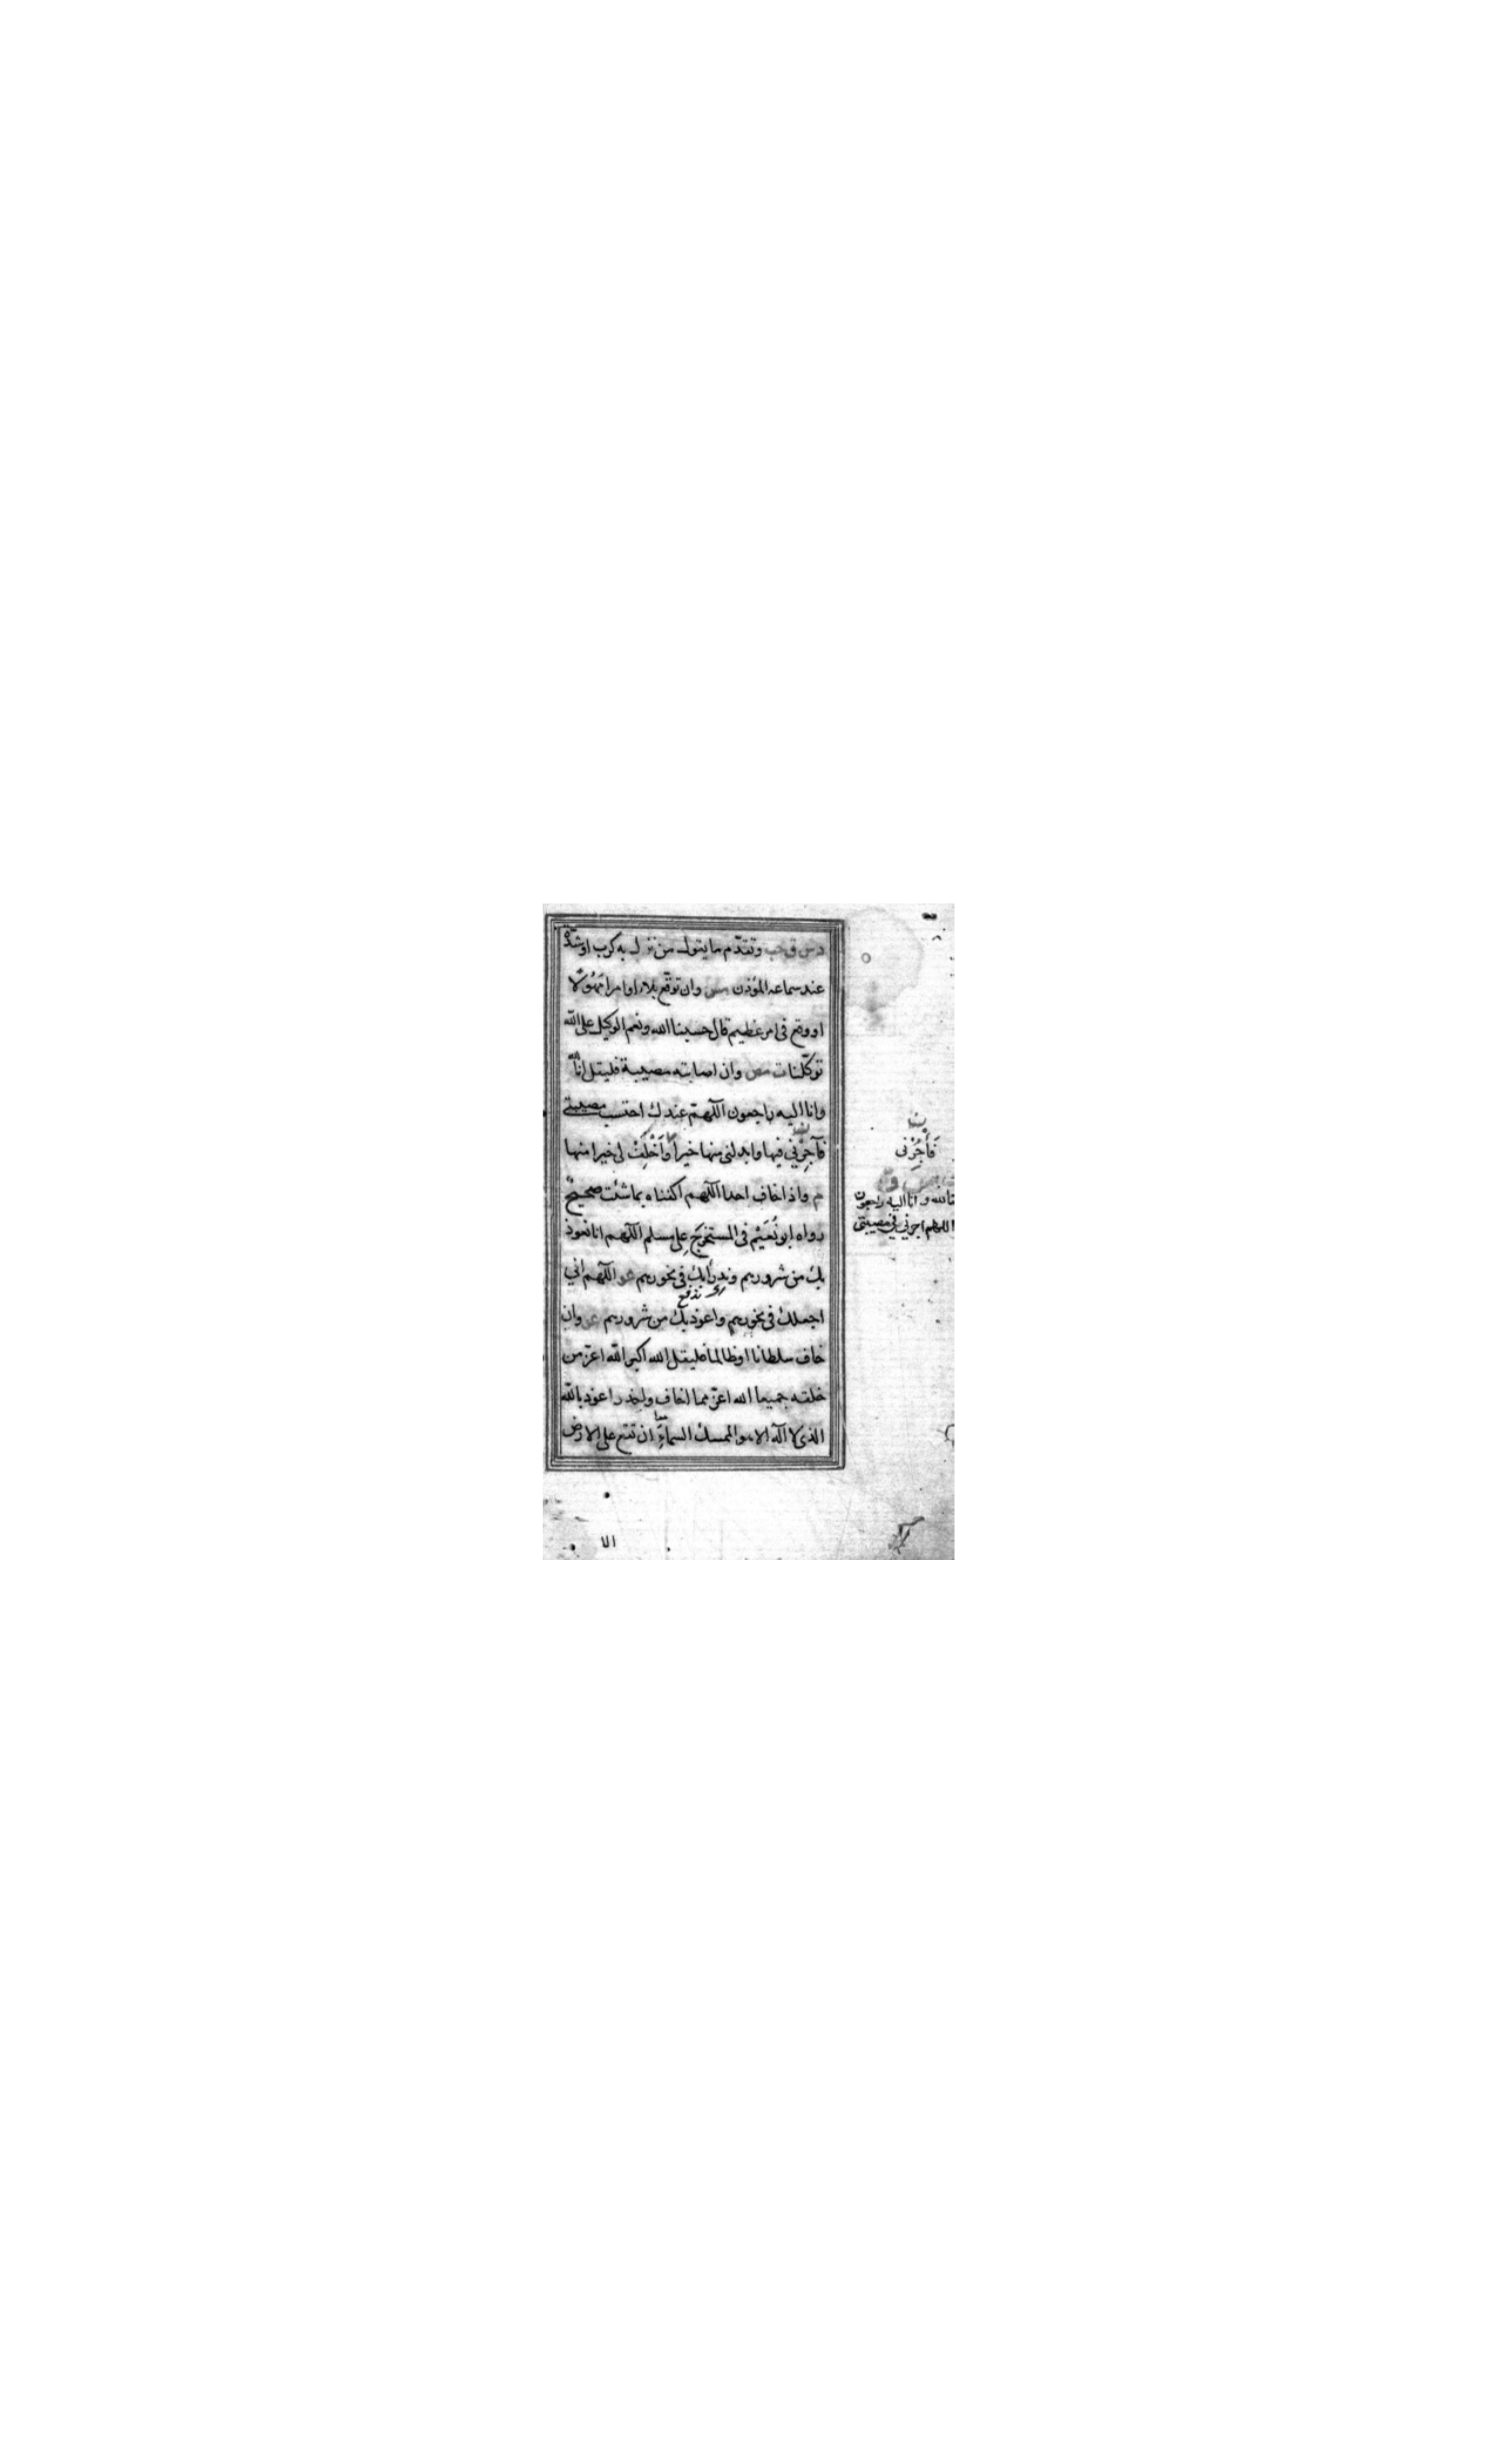 د س ق حب وتقدّم ما يقول من نزل به كرب او شدّة
عند سماعه المؤذن مس وان توقّع بلاء او امرا مَهُولًا
او وقع فى امر عظيم قال حسبنا الله ونعم الوكيل على الله
توكّلنا ت مص وان اصابته مصيبة فليقل انا لله
وانا اليه راجعون اللّهمّ عندك احتسب مصيبتى
فآجِرْني فيها وابدلنى منها خيراً وَأَخْلِفْ لى خيرا منها
م واذا خاف احدا اللّهم اكفناه بما شئت صحيح
رواه ابو نُعَيْم فى المستخرَج على مسلم اللّهم انا نعوذ
بك من شرورهم وندرأبك فى نحورهم عو اللّهم اني
اى ندفع
اجعلك فى نحورهم واعوذ بك من شرورهم عو وان
خاف سلطانا او ظالما فليقل الله اكبر الله اعزّ من
خلقه جميعا الله اعزّ مما اخاف واحذر اعوذ بالله
الذى لا اله الا هو الممسك السماءَ ان تقع على الارض
الا
فَأْجُرْنى
انا لله وانا اليه راجعون
اللهم اجرني في مصيبتى